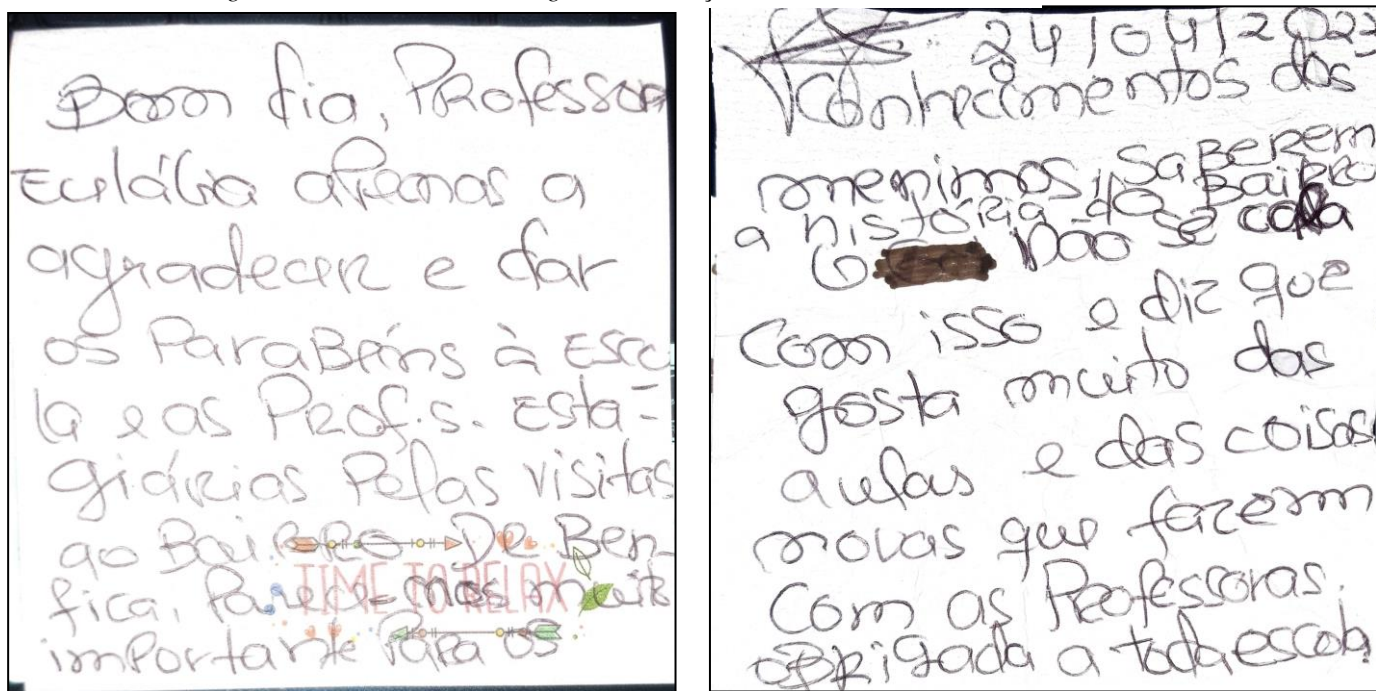 Bom dia, Professora
Eulália apenas a
agradecer e dar
os Parabéns à Esco
la e as Prof.s. Esta-
giárias Pelas visitas
ao Bairro De Ben-
fica, Parece-nos muito
importante Para os
TIME TO RELAX
24/04/2023
Conhecimentos dos
meninos, saberem
a história do Bairro
O não se cala
Com isso e diz que
gosta muito das
aulas e das coisas
novas que fazem
Com as Professoras.
obrigada a toda escola